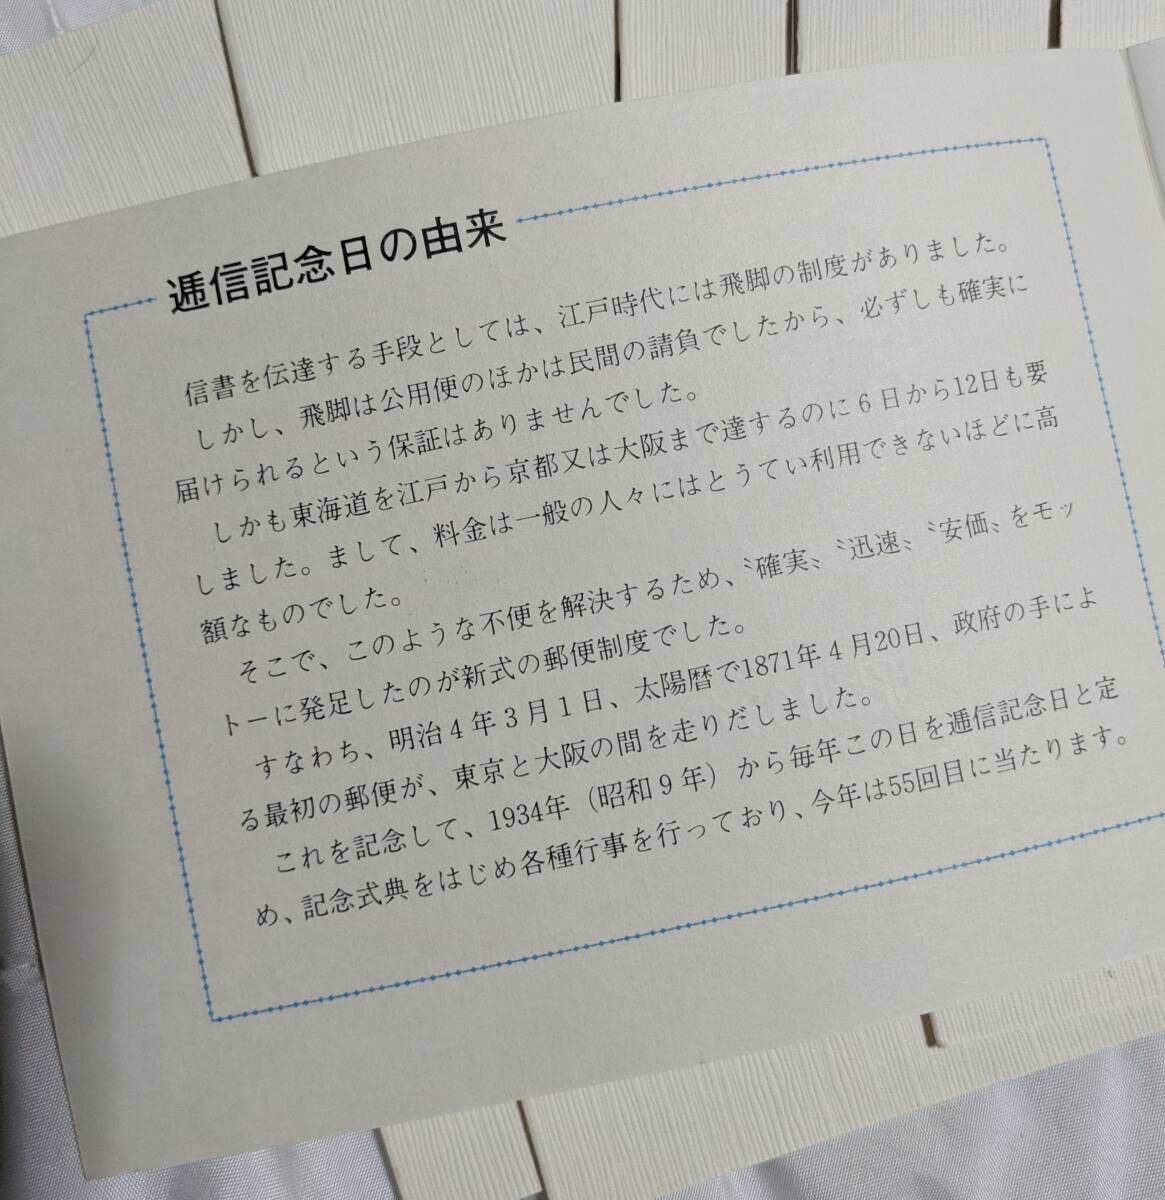 逓信記念日の由来
信書を伝達する手段としては、江戸時代には飛脚の制度がありました。
しかし、飛脚は公用便のほかは民間の請負でしたから、必ずしも確実に
届けられるという保証はありませんでした。
しかも東海道を江戸から京都又は大阪まで達するのに6日から12日も要
しました。まして、料金は一般の人々にはとうてい利用できないほどに高
額なものでした。
そこで、このような不便を解決するため、〝確実〟〝迅速〟〝安価〟をモッ
トーに発足したのが新式の郵便制度でした。
すなわち、明治4年3月1日、太陽暦で1871年4月20日、政府の手によ
る最初の郵便が、東京と大阪の間を走りだしました。
これを記念して、1934年（昭和9年）から毎年この日を逓信記念日と定
め、記念式典をはじめ各種行事を行っており、今年は55回目に当たります。